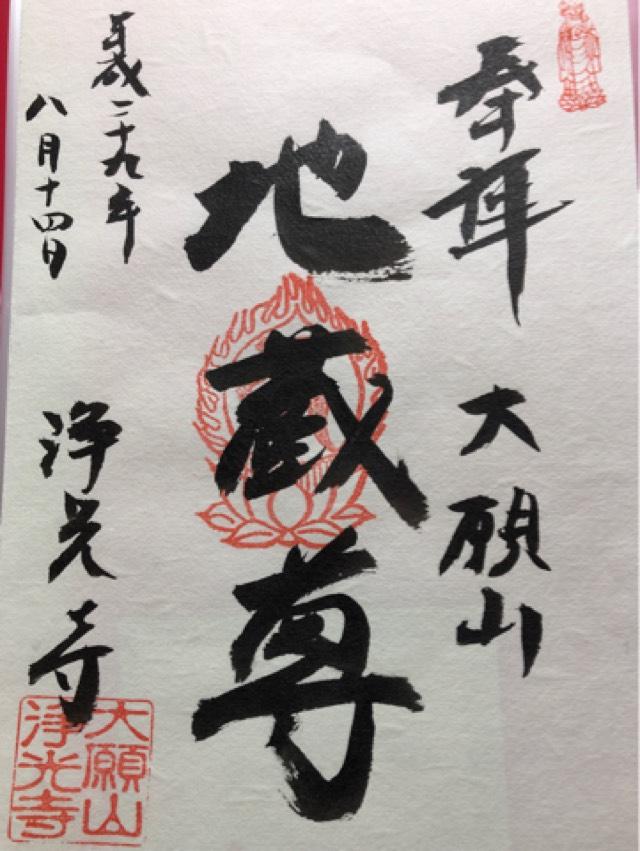 奉拝 大願山
地蔵尊
平成二十九年
八月十四日
浄光寺
大願山
浄光寺